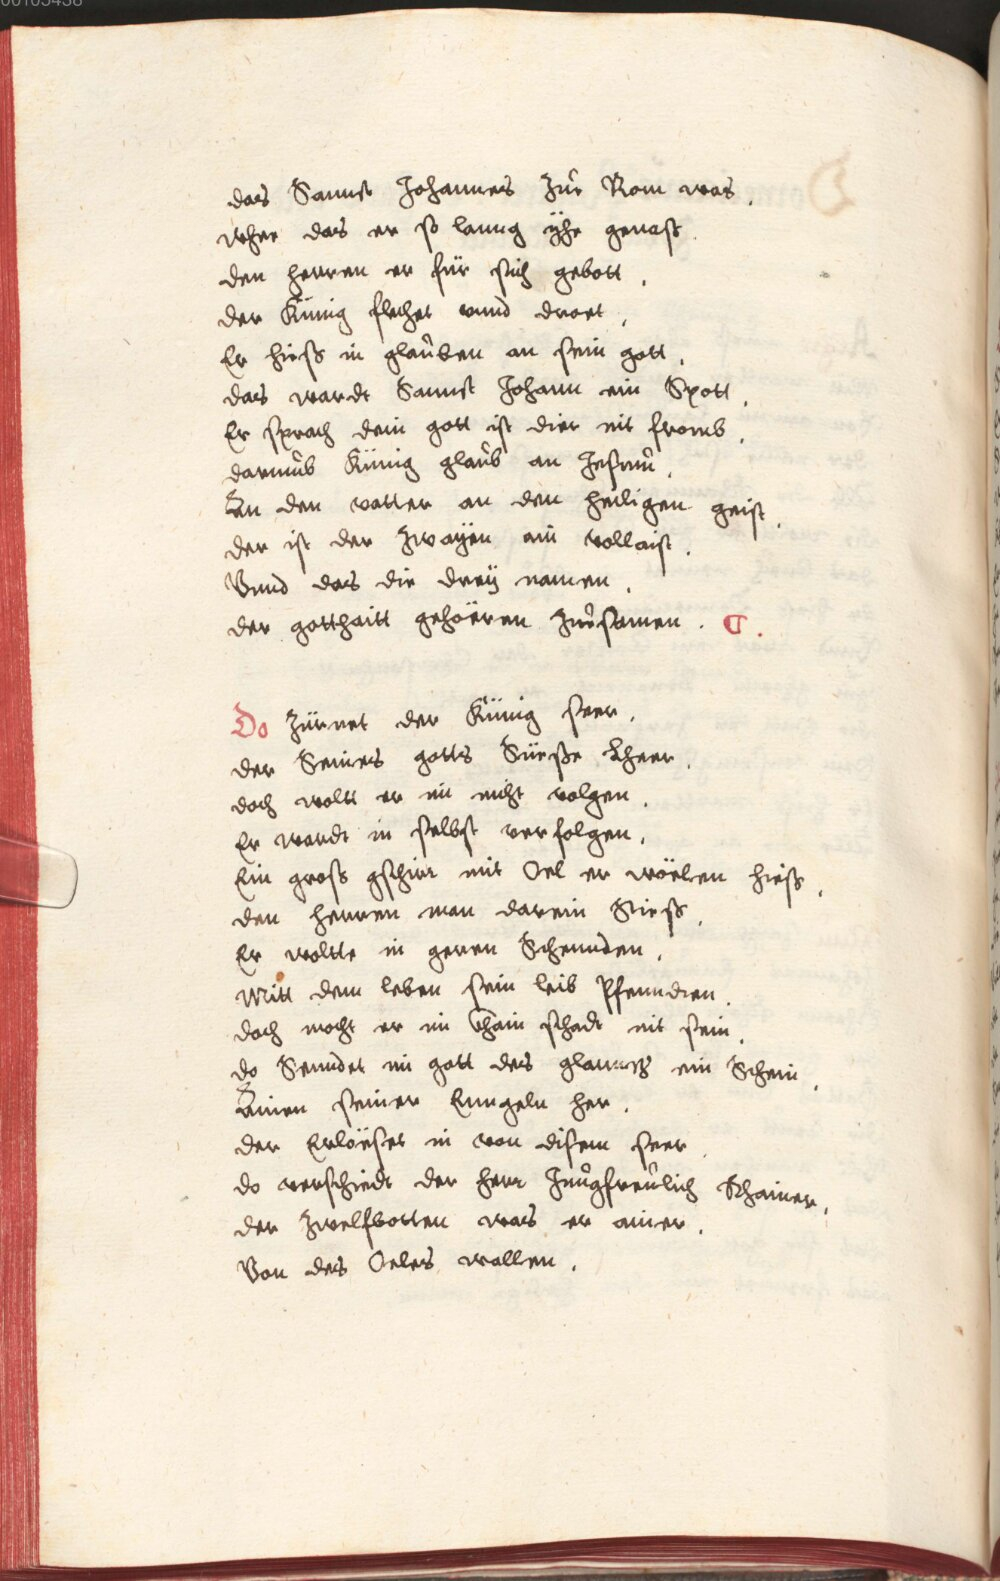 das Sannct Johannes Zůr Rom was.
wher das er so lanng ÿhe genass
den herren er für sich gebott.
der Künig flechet vnnd droet.
Er hiess in glaůben an sein gott.
das wardt Sannct Johann ein Spott.
Er sprach dein gott ist dier nit fromb.
darumb Künig glaůb an Jesum.
An den vatter an den heiligen geist.
der ist der Zwayen ain vollaist.
Vnnd das die dreÿ namen.
der gotthaitt gehöeren Zůsamen.
Do Zürnet der Künig seer.
der Seines gotts Süesse Lheer.
doch wollt er im nicht volgen.
Er wardt in selbst verfolgen.
Ein gross gschirr mit Oel er wöelen hiess.
den herren man darein Stiess.
Er wollte in geren Schennden.
Mitt dem leben sein leib Pfenndten.
doch mocht er im Chain schadt nit sein.
do Senndet im gott des glanntz ein Schein.
Ainen seiner Enngeln her.
der Erlöeset in von disem seer.
do verschiedt der herr Jungfreůlich Rhainer.
der Zwelfbotten was er ainer.
Von des Oeles wallen.